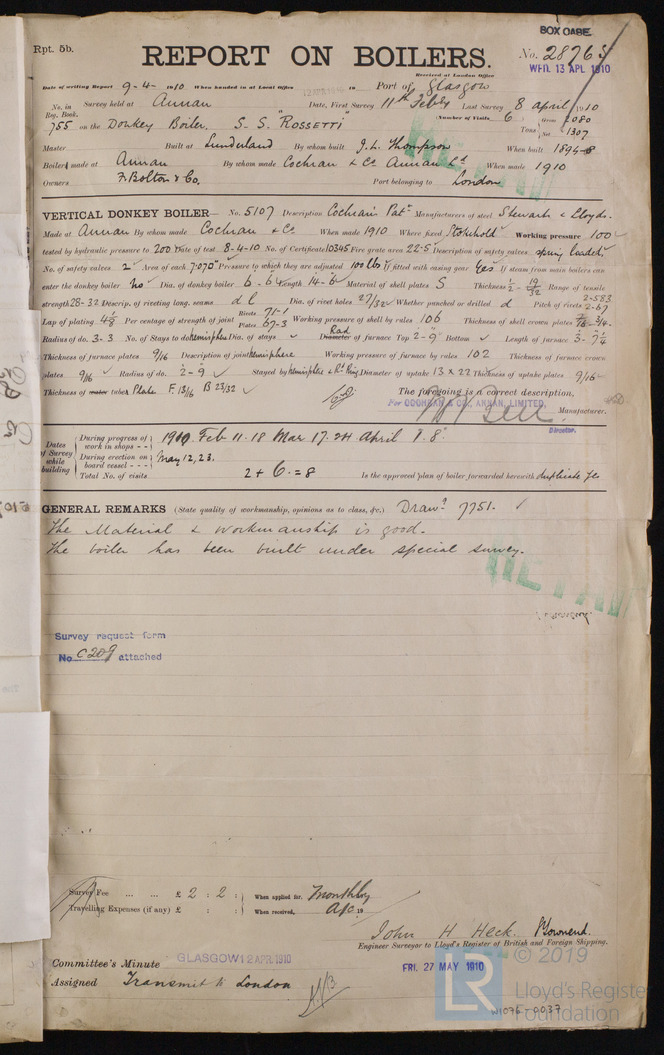 BOX CASE.
Rpt. 5b.
REPORT ON BOILERS.
No. 28765
WED. 13 APL 1910
Received at London Office
Date of writing Report 9-4-1910 When handed in at Local Office 19 Port of Glasgow
No. in Reg. Book. Survey held at Annan Date, First Survey 11th Feb'y Last Survey 8 april 1910
(Number of Visits 6)
755 on the Donkey Boiler. S.S. "ROSSETTI" Tons Gross 2080 Net 1307
Master Built at Sunderland By whom built J.L. Thompson When built
Boilers made at Annan By whom made Cochran & Co Annan Ld When made 1910
Owners F. Bolton & Co. Port belonging to London
VERTICAL DONKEY BOILER— No. 5107 Description Cochran's Patt Manufacturers of steel Stewarts & Lloyds.
Made at Annan By whom made Cochran & Co When made 1910 Where fixed Stokehold Working pressure 100
tested by hydraulic pressure to 200 Date of test 8-4-10 No. of Certificate 10345 Fire grate area 22-5 Description of safety valves spring loaded
No. of safety valves 2 Area of each 7.070" Pressure to which they are adjusted 100 lbs If fitted with easing gear Yes If steam from main boilers can
enter the donkey boiler No Dia. of donkey boiler 6-6 Length 14-6 Material of shell plates S Thickness 1/2 - 19/32 Range of tensile
strength 28-32 Descrip. of riveting long. seams d l Dia. of rivet holes 27/32 Whether punched or drilled d Pitch of rivets 2-583 2-67
Lap of plating 4 1/8 Per centage of strength of joint Rivets 71-1 Plates 67-3 Working pressure of shell by rules 106 Thickness of shell crown plates
Radius of do. 3-3 No. of Stays to do. hemisphere Dia. of stays Diameter Rad of furnace Top 2-9 Bottom Length of furnace 3-7 1/4
Thickness of furnace plates 9/16 Description of joint hemisphere Working pressure of furnace by rules 102 Thickness of furnace crown
plates 9/16 Radius of do. 2-9 Stayed by hemisphere & Rt Ring Diameter of uptake 13 x 22 Thickness of uptake plates 9/16
Thickness of water tubes Plate F. 13/16 B 23/32
The foregoing is a correct description,
For COCHRAN & CO., ANNAN, LIMITED, Manufacturer.
Director.
Dates of Survey while building
During progress of work in shops - - 1910 Feb 11. 18 Mar 17. 24 April 1. 8.
During erection on board vessel - - - May 12, 23.
Total No. of visits 2 + 6. = 8 Is the approved plan of boiler forwarded herewith duplicate Yes
GENERAL REMARKS (State quality of workmanship, opinions as to class, &c.) Drawg 7751.
The Material & workmanship is good.
The boiler has been built under special survey.
Survey request form
No. C209 attached
Survey Fee ... ... £ 2 : 2 : When applied for. Monthly
Travelling Expenses (if any) £ : : When received, A/c. 19
John H Heck.
Engineer Surveyor to Lloyd's Register of British and Foreign Shipping.
Committee's Minute GLASGOW 12 APR. 1910
FRI. 27 MAY 1910
Assigned Transmit to London
LR
© 2019
Lloyd's Register
Foundation
W1075-0037